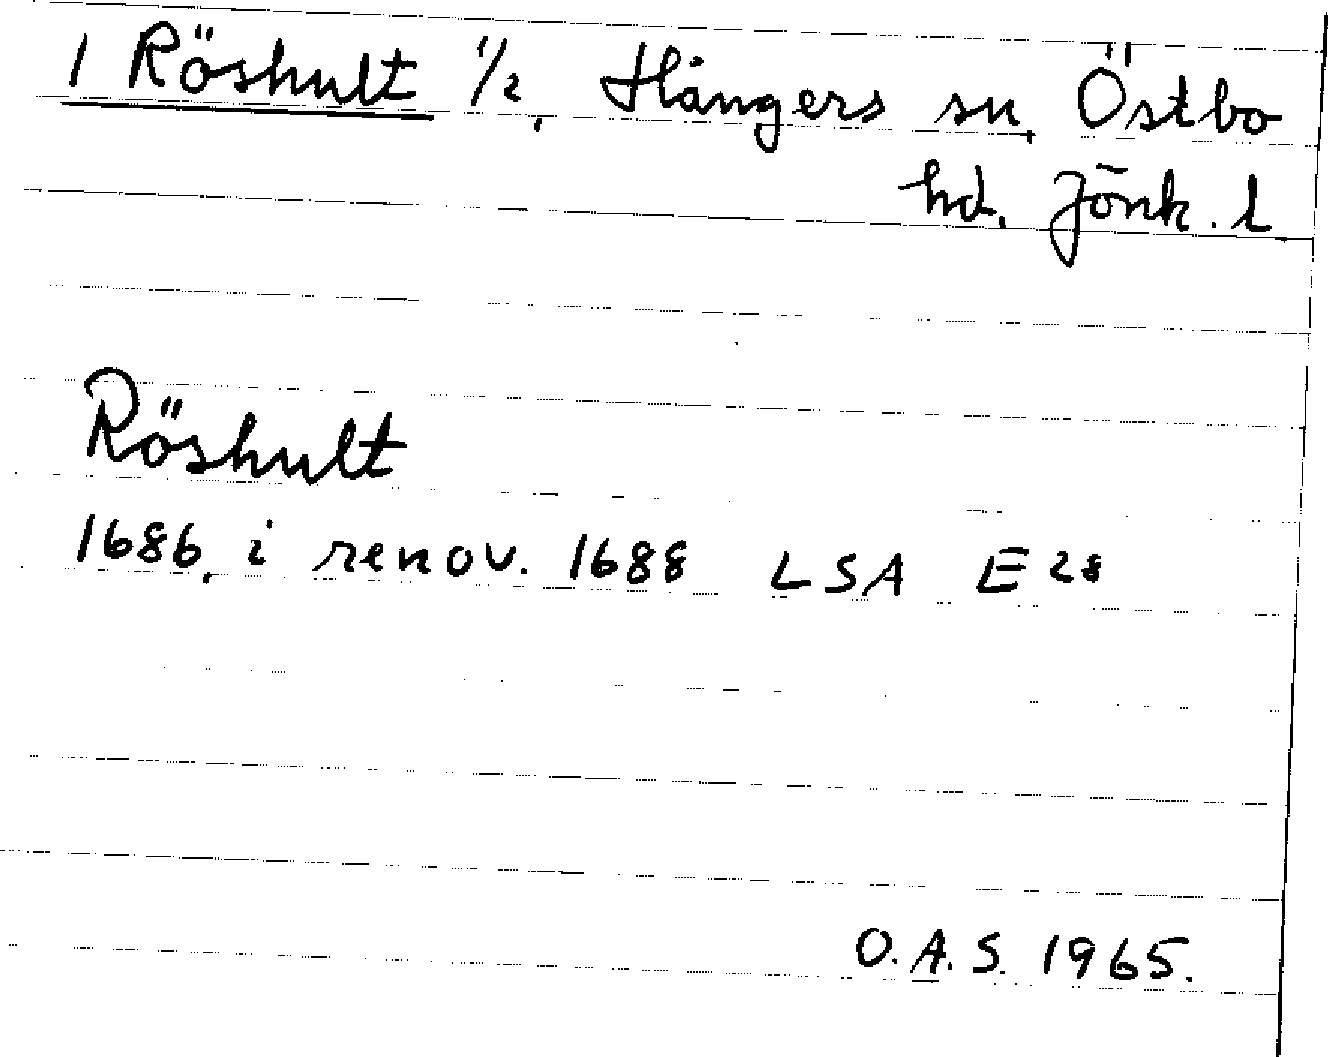 1 Röshult 1/2, Hångers sn, Östbo
hd, Jönk. l
Röshult
1686, i renov. 1688 LSA E 28
O.A.S. 1965.